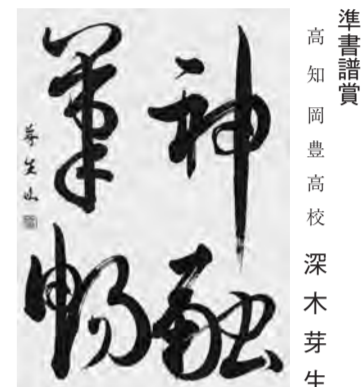 準書譜賞
高知岡豊高校 深木芽生
神融
筆暢
芽生